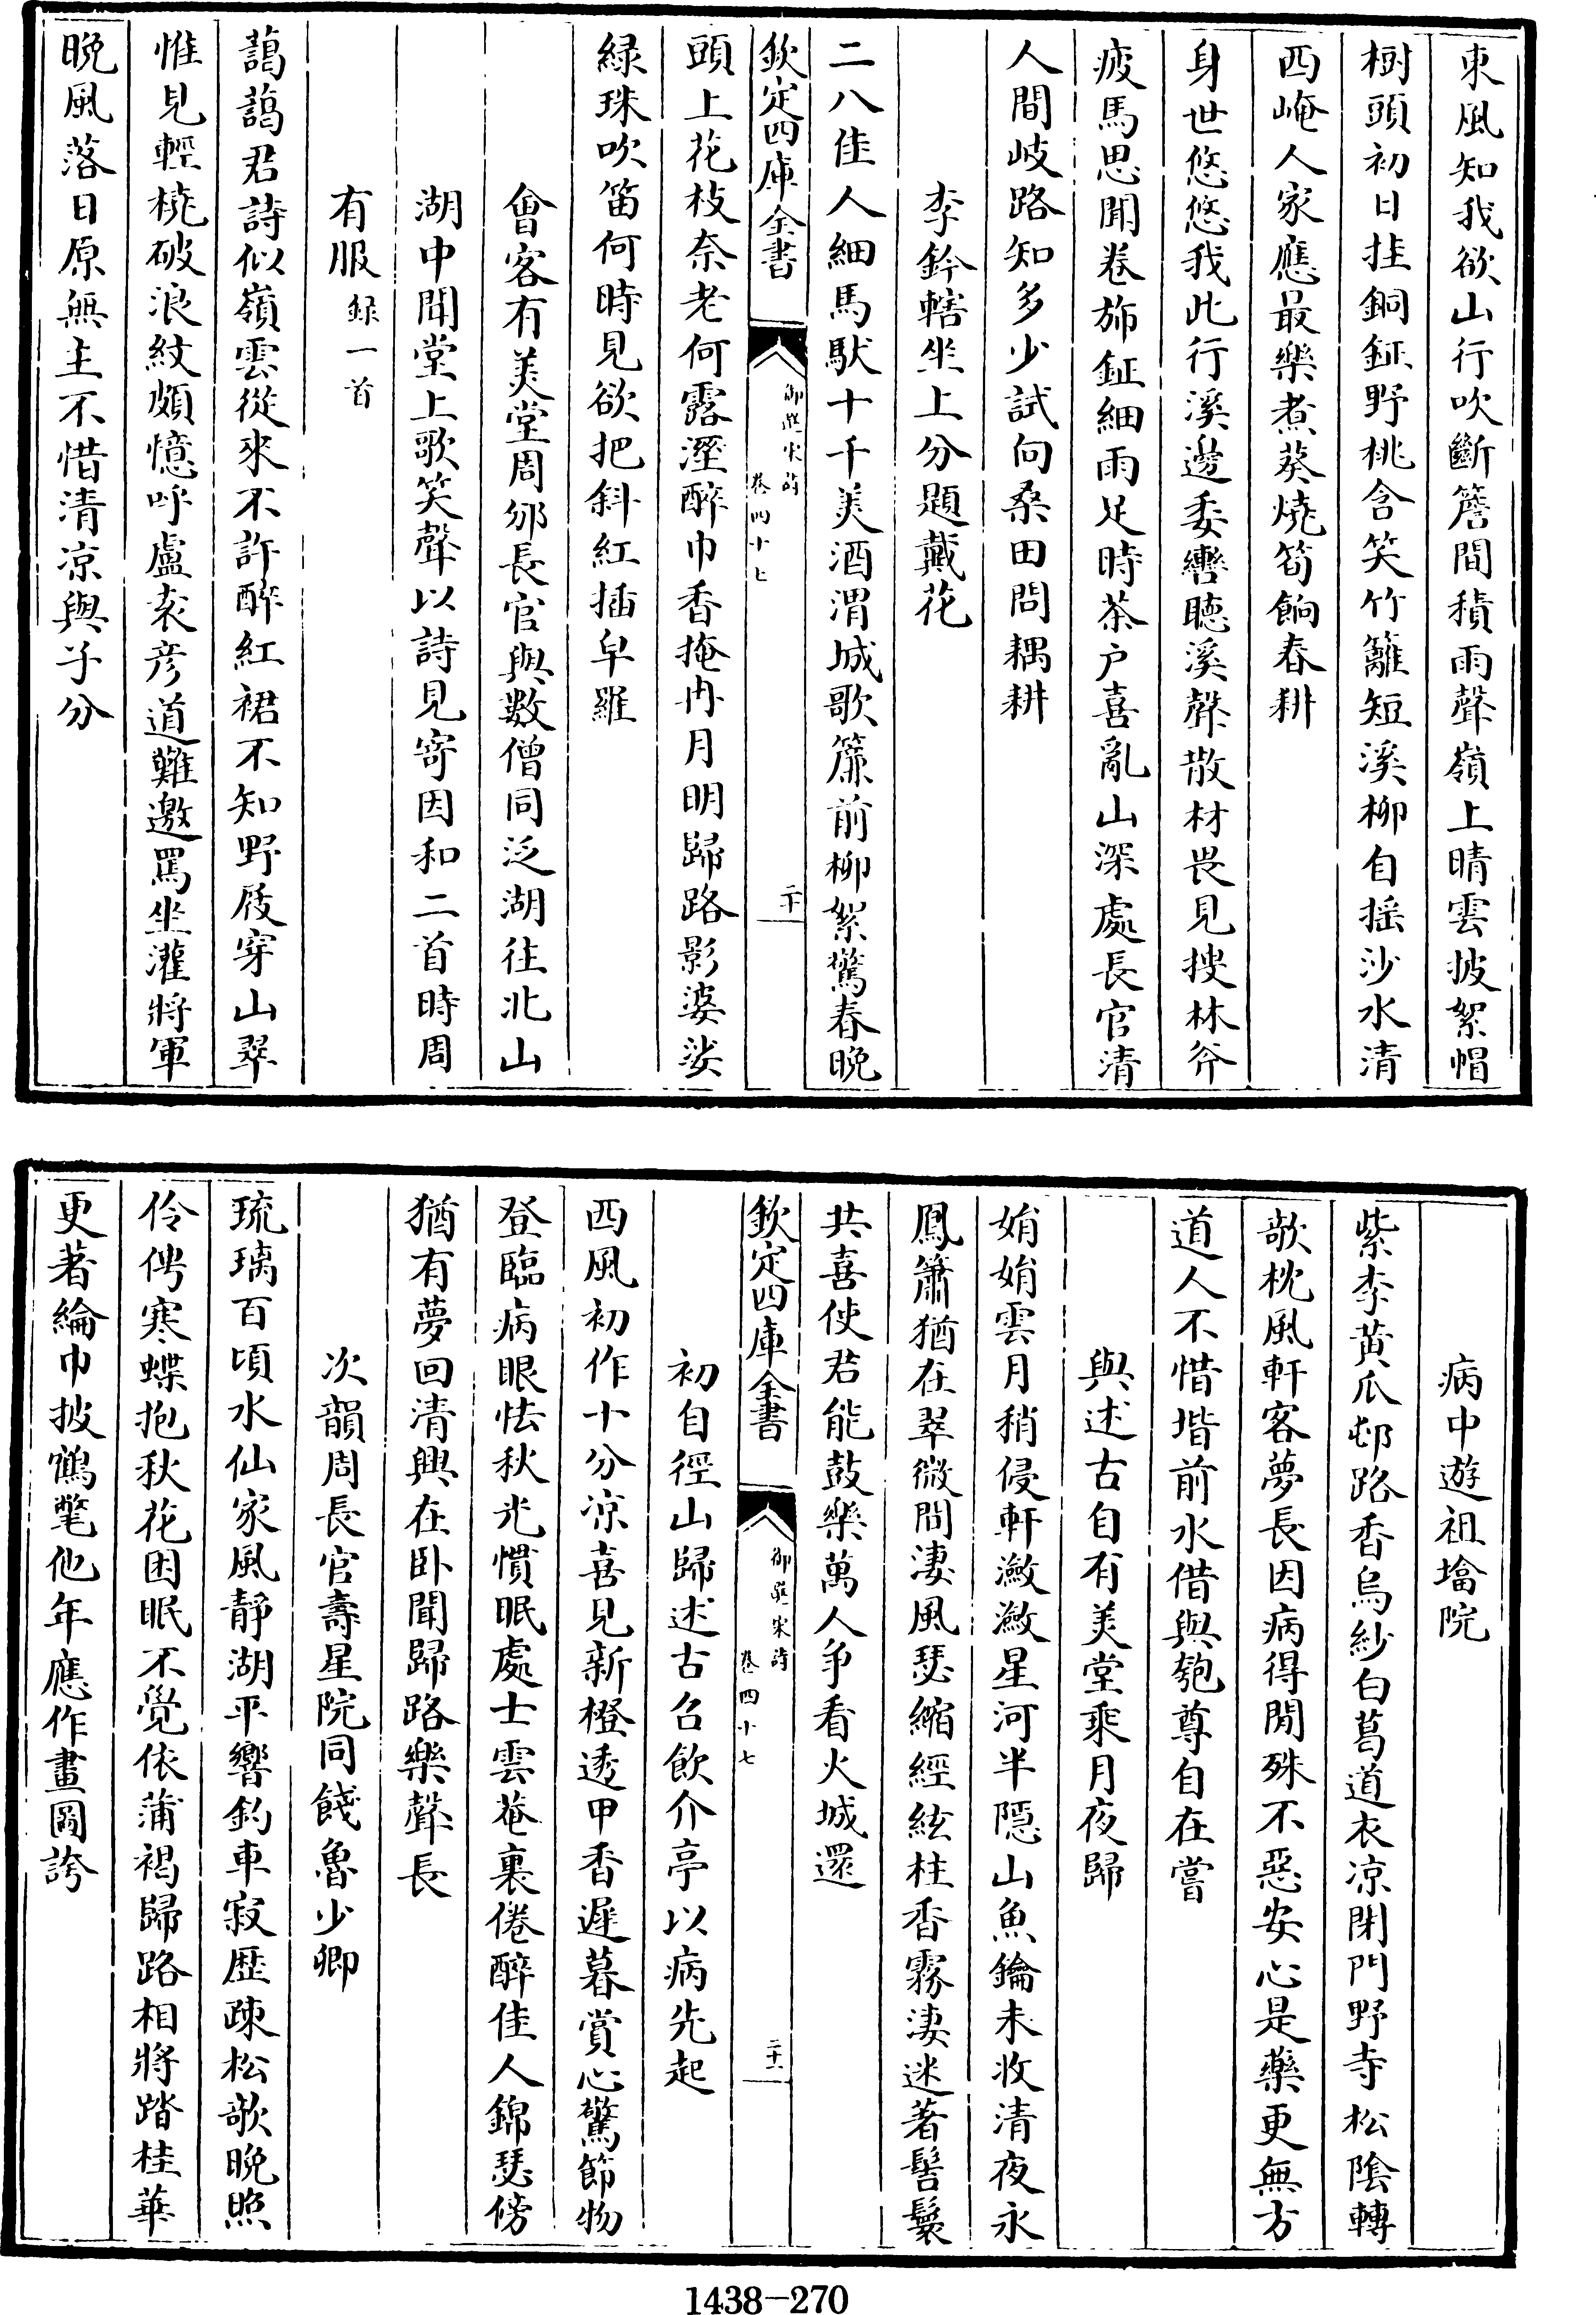 東風知我欲山行吹斷簷間積雨聲嶺上晴雲披絮帽
樹頭初日挂銅鉦野桃含笑竹籬短溪柳自摇沙水清
西崦人家應最樂煮葵燒筍餉春耕
身世悠悠我此行溪邊委轡聽溪聲散材畏見搜林斧
疲馬思聞卷斾鉦細雨足時茶户喜亂山深處長官清
人間岐路知多少試向桑田問耦耕
李鈐轄坐上分題戴花
二八佳人細馬馱十千美酒渭城歌簾前柳絮驚春晚
欽定四庫全書
御選宋詩
卷四十七
二十
頭上花枝奈老何露溼醉巾香掩冉月明歸路影婆娑
緑珠吹笛何時見欲把斜紅插皁羅
會客有美堂周邠長官與數僧同泛湖往北山
湖中聞堂上歌笑聲以詩見寄因和二首時周
有服録一首
藹藹君詩似嶺雲從來不許醉紅裙不知野屐穿山翠
惟見輕橈破浪紋頗憶呼盧袁彦道難邀罵坐灌將軍
晚風落日原無主不惜清凉與子分
病中遊祖塔院
紫李黄瓜邨路香烏紗白葛道衣凉閉門野寺松陰轉
欹枕風軒客夢長因病得閒殊不惡安心是藥更無方
道人不惜堦前水借與匏尊自在嘗
與述古自有美堂乘月夜歸
娟娟雲月稍侵軒瀲瀲星河半隱山魚鑰未收清夜永
鳳簫猶在翠微間淒風瑟縮經絃柱香霧淒迷著髻鬟
共喜使君能鼓樂萬人爭看火城還
欽定四庫全書
御選宋詩
卷四十七
二十一
初自徑山歸述古召飲介亭以病先起
西風初作十分凉喜見新橙透甲香遲暮賞心驚節物
登臨病眼怯秋光慣眠處士雲菴裏倦醉佳人錦瑟傍
猶有夢回清興在卧聞歸路樂聲長
次韻周長官壽星院同餞魯少卿
琉璃百頃水仙家風靜湖平響釣車寂歴疎松欹晚照
伶俜寒蝶抱秋花困眠不覺依蒲褐歸路相將踏桂華
更著綸巾披鶴氅他年應作畫圖誇
1438-270